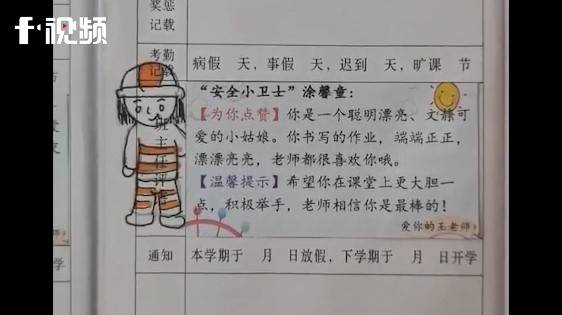 f视频
奖惩
记载
考勤
记载
病假 天,事假 天,迟到 天,旷课 节
班主任评语
“安全小卫士”涂馨童:
【为你点赞】你是一个聪明漂亮、文静可
爱的小姑娘。你书写的作业,端端正正,
漂漂亮亮,老师都很喜欢你哦。
【温馨提示】希望你在课堂上更大胆一
点,积极举手,老师相信你是最棒的!
爱你的王老师
通知
本学期于 月 日放假,下学期于 月 日开学
学